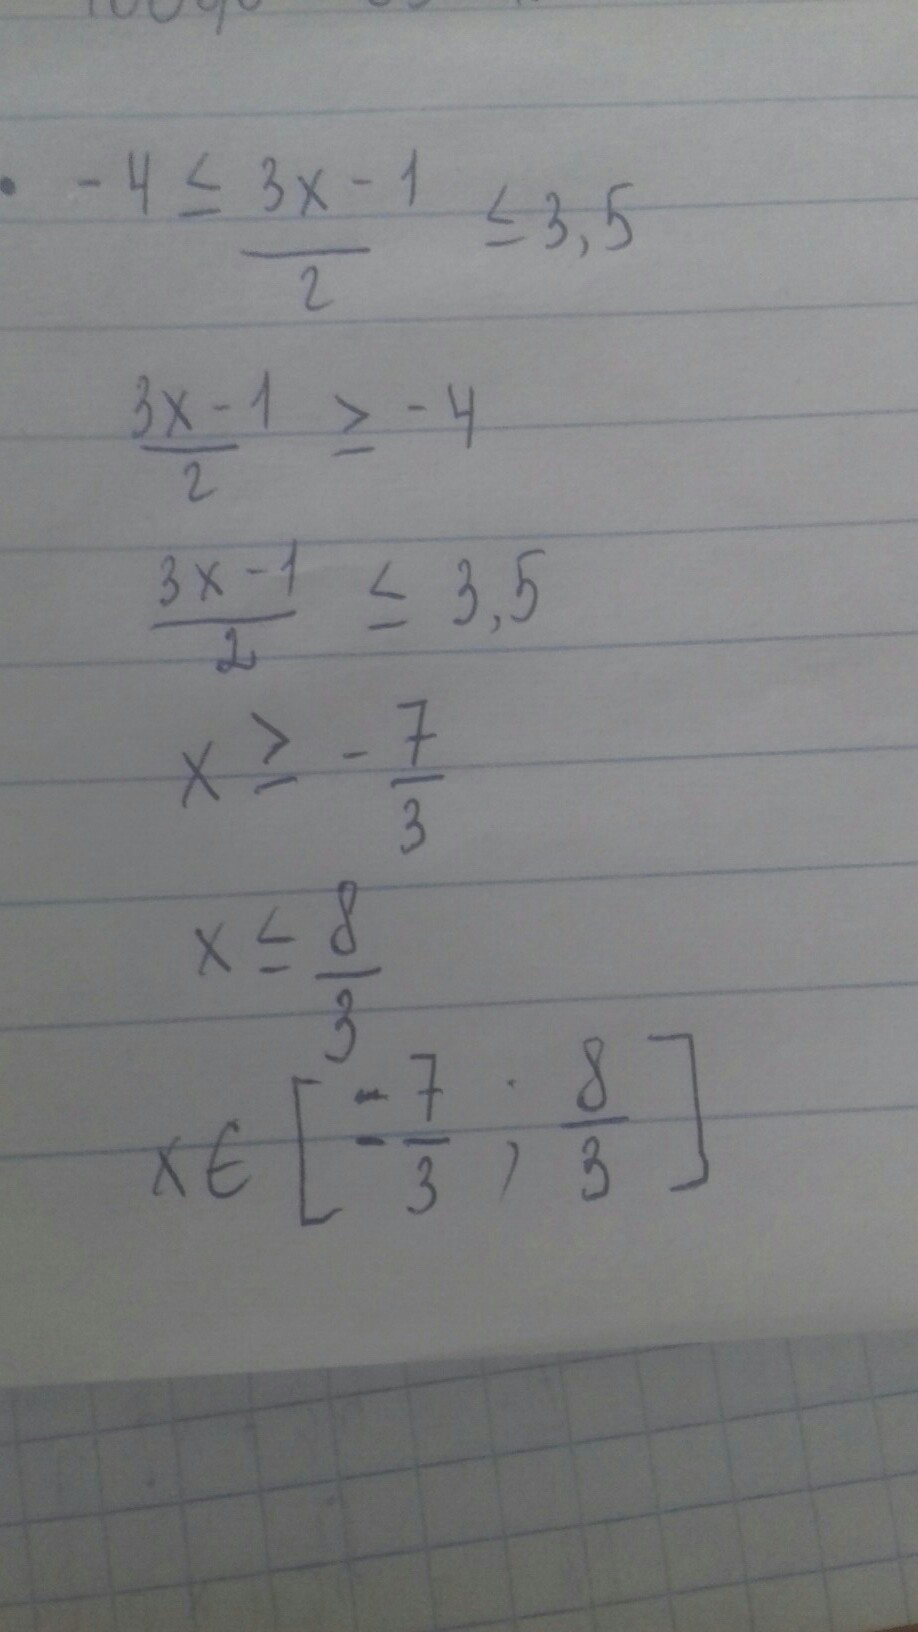 . -4 ≤ (3x - 1)/2 ≤ 3,5
(3x - 1)/2 ≥ -4
(3x - 1)/2 ≤ 3,5
x ≥ - 7/3
x ≤ 8/3
x ∈ [- 7/3 ; 8/3]